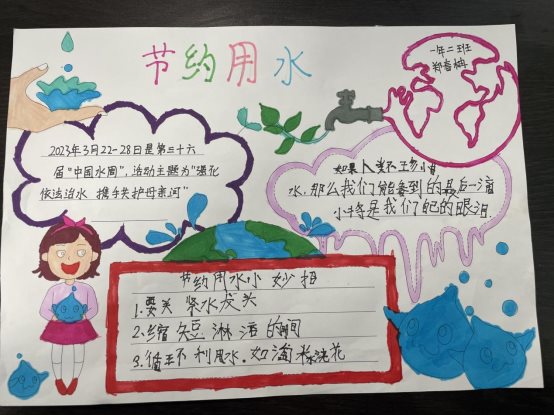 节约用水
一年二班
2023年3月22-28日是第三十六
届“中国水周”,活动主题为“强化
依法治水 携手共护母亲河”
如果人类不珍惜
水,那么我们能看到的最后一滴
水将是我们自己的眼泪.
节约用水小妙招
1.要关紧水龙头
2.缩短淋浴的时间
3.循环利用水.如淘米浇花